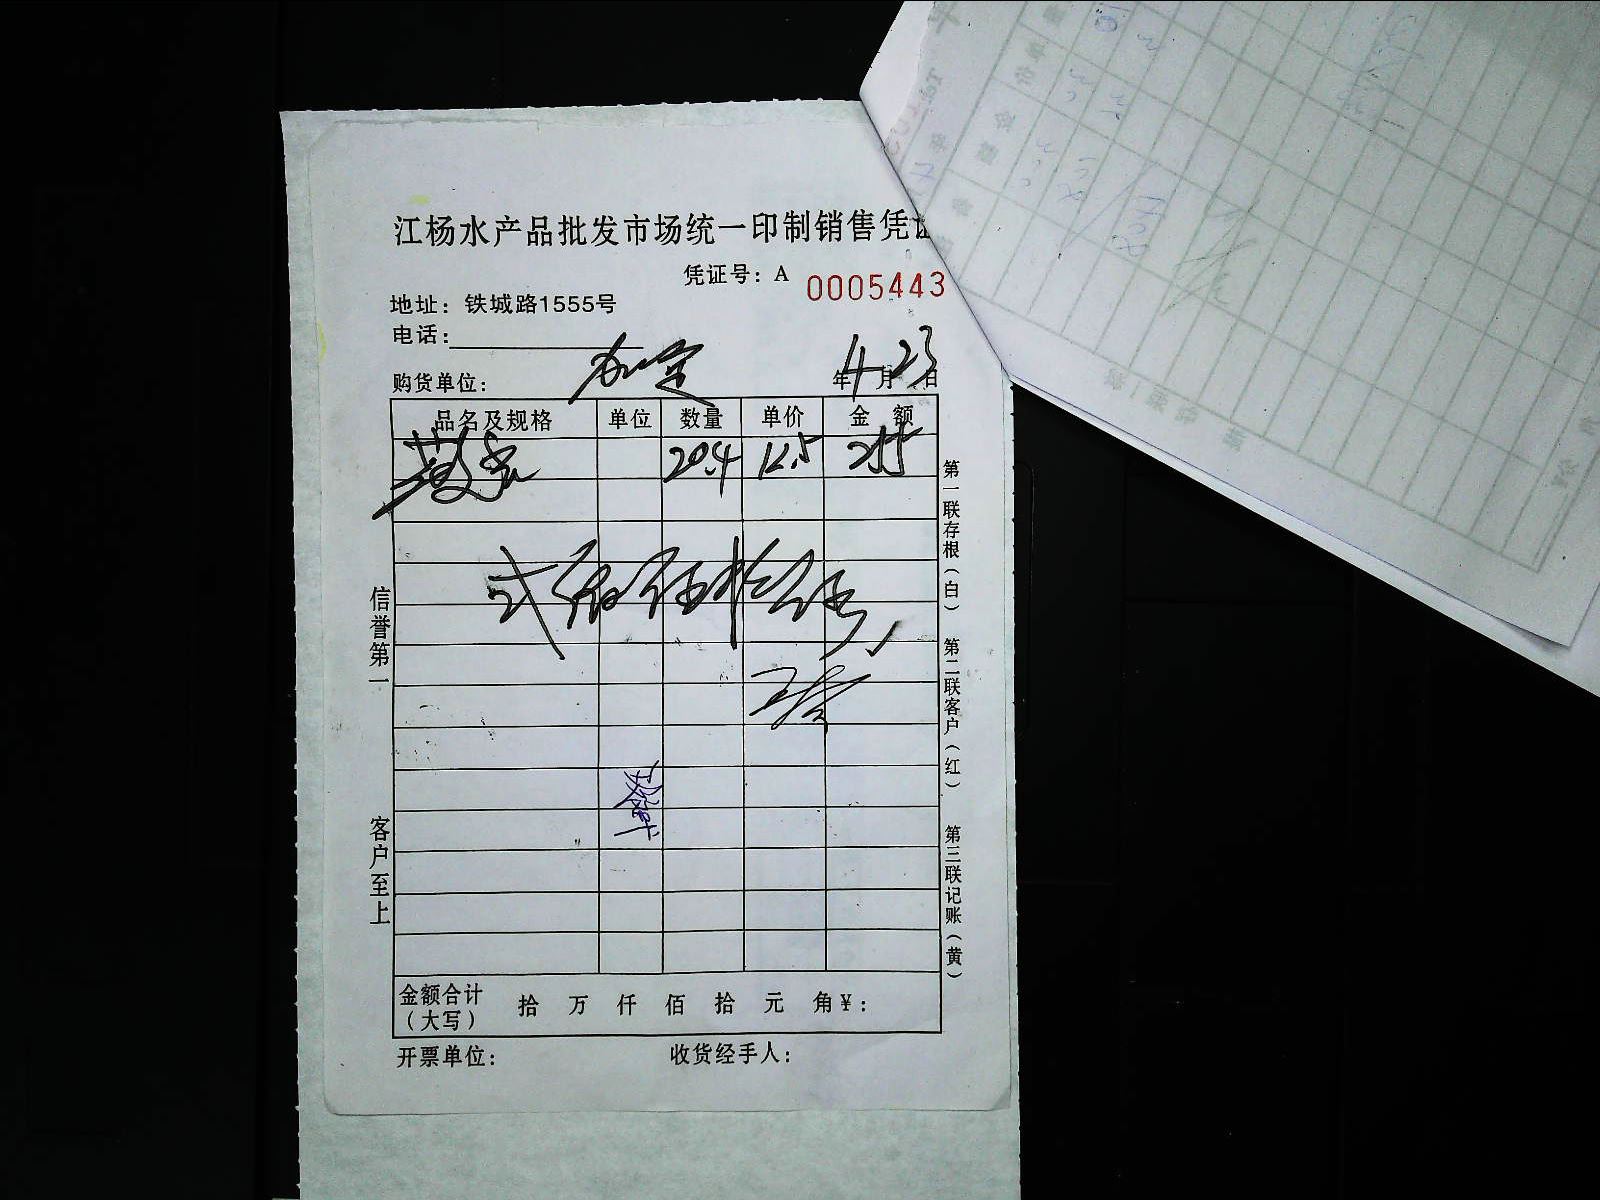 江杨水产品批发市场统一印制销售凭证
凭证号：A 0005443
地址：铁城路1555号
电话：
购货单位：
年4月23日
品名及规格 单位 数量 单价 金额
20.4 12.5 255
贰佰伍拾伍
金额合计（大写） 拾 万 仟 佰 拾 元 角¥：
开票单位： 收货经手人：
信誉第一
客户至上
第一联存根（白）
第二联客户（红）
第三联记账（黄）